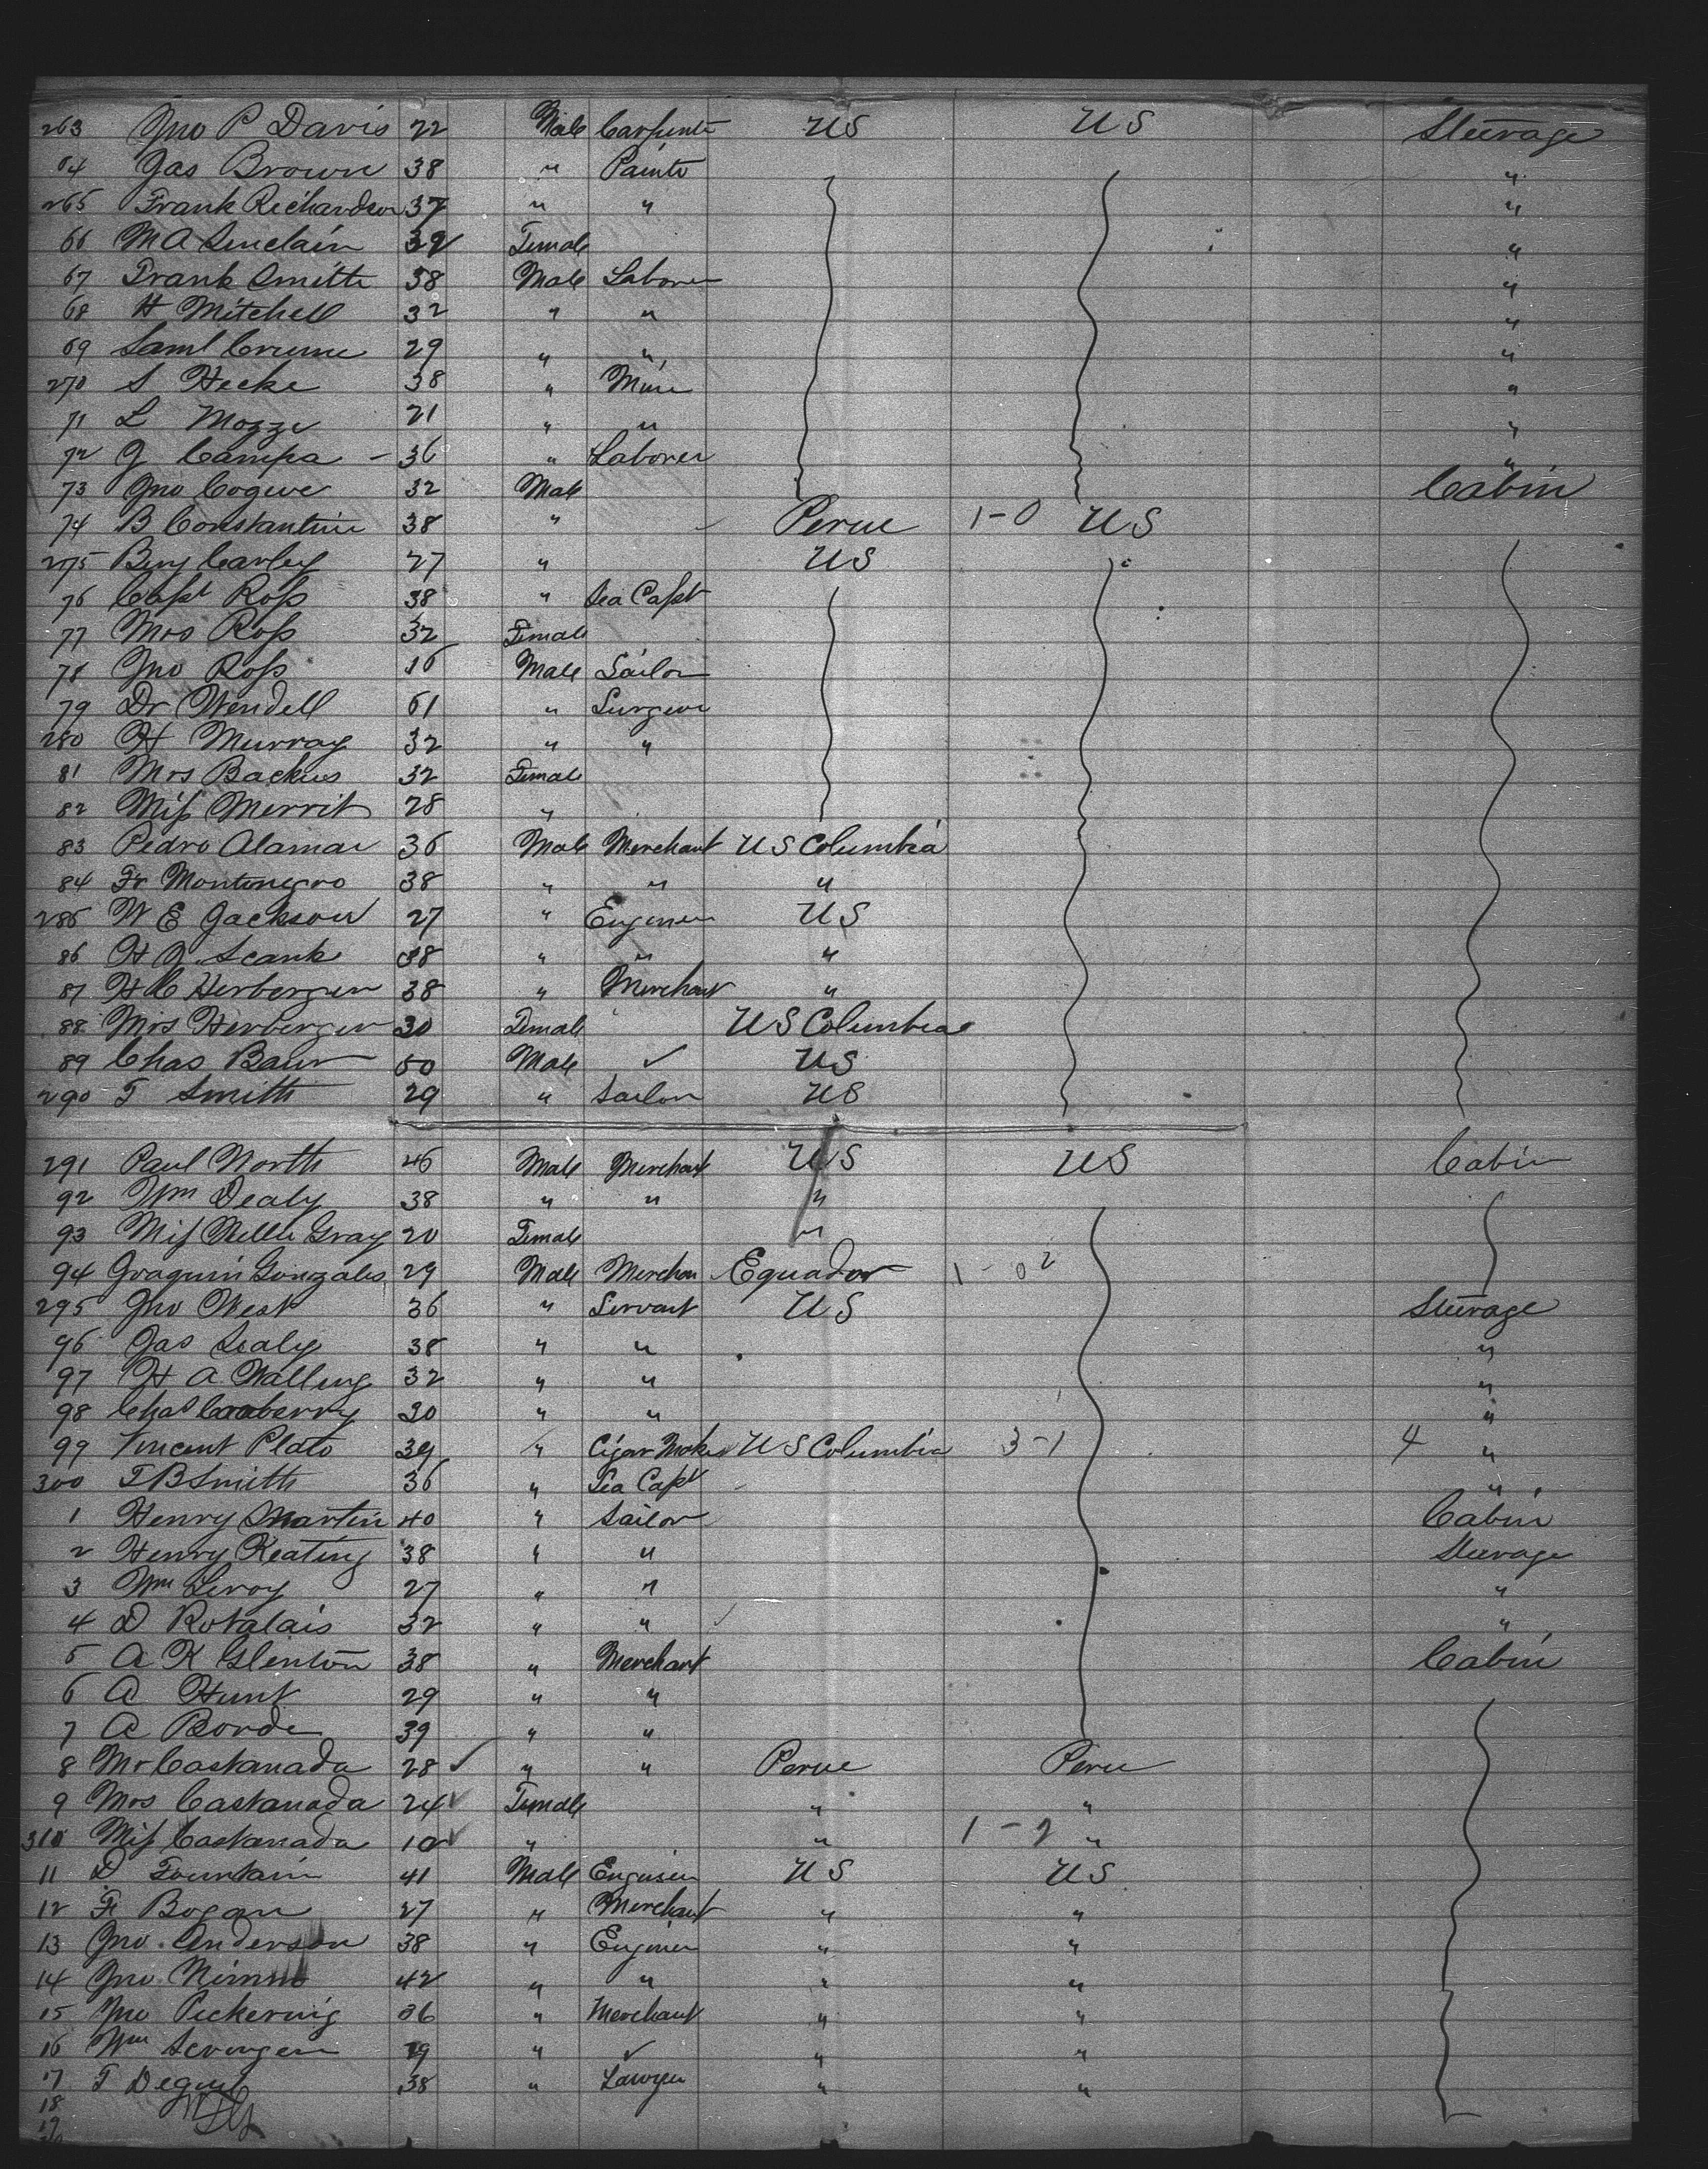 263 Jno P Davis 22 Male Carpenter US US Steerage
64 Jas Brown 38 " Painter "
265 Frank Richardson 37 " " "
66 M A Sinclain Female "
67 Frank Smith 38 Male Laborer "
68 H Mitchell 32 " " "
69 Saml Crume 29 " " "
270 S Hecke 38 " Miner "
71 L Mozze 21 " " "
72 J Campa - 36 " Laborer "
73 Jno Cogwe 32 Male Cabin
74 B Constantine 38 " Perue 1-0 US
275 Benj Carley 27 " US
76 Capt Ross 38 " Sea Capt
77 Mrs Ross 32 Female
78 Jno Ross 16 Male Sailor
79 Dr Wendell 61 " Surgeon
280 H Murray 32 " "
81 Mrs Backus 32 Female
82 Miss Merrit 28 "
83 Pedro Alamar 36 Male Merchant US Columbia
84 Fr Montenegro 38 " " "
285 W E Jackson 27 " Enginer US
86 H J Scank 38 " " "
87 H C Herberger 38 " Merchant "
88 Mrs Herberger 30 Female US Columbia
89 Chas Baur 50 Male ✓ US
290 T Smith 29 " Sailor US
291 Paul North 46 Male Merchant US US Cabin
92 Wm Dealy 38 " " "
93 Miss Nellie Gray 20 Female "
94 Joaquin Gonzales 29 Male Merchan Equador 1-02
295 Jno West 36 " Servant US Steerage
96 Jas Sealy 38 " " "
97 H A Walling 32 " " "
98 Chas 30 " " "
99 Vincent Plato 39 " Cigar Maker US Columbia 3-1 4 "
300 T B Smith 36 " Sea Capt "
1 Henry Martin 40 " Sailor Cabin
2 Henry Keating 38 " " Steerage
3 Wm Leroy 27 " " "
4 D Rotalais 32 " " "
5 A K Glenton 38 " Merchant Cabin
6 A Hunt 29 " "
7 A Borde 39 " "
8 Mr Castanada 28 ✓ " " Perue Peru
9 Mrs Castanada 24 ✓ Female " "
310 Miss Castanada 10 ✓ " " 1-2 "
11 D Fountain 41 Male Enginier US US
12 Fr Bogan 27 " Merchant " "
13 Jno Anderson 38 " Enginer " "
14 Jno Nimmo 42 " " " "
15 Jno Pickering 36 " Merchant " "
16 Wm " ✓ " "
17 T 38 " Lawyer " "
18
19